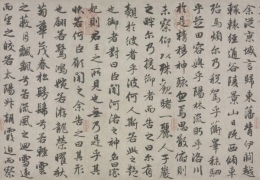 余從京城言歸東藩背伊闕越
轘轅經通谷陵景山日既西傾車
殆馬煩爾乃稅駕乎蘅皋秣駟
乎芝田容與乎陽林流眄乎洛川
於是精移神駭忽焉思散俯則
未察仰以殊觀睹一麗人于巖
之畔爾乃援御者而告之曰爾有
覿於彼者乎彼何人斯若此之艷
也御者對曰臣聞河洛之神名曰宓
妃則君王之所見也無乃是乎其
狀若何臣願聞之余告之曰其形
也翩若驚鴻婉若游龍榮曜秋
菊華茂春松髣髴兮若輕雲
之蔽月飄颻兮若流風之迴雪遠
而望之皎若太陽升朝霞迫而察